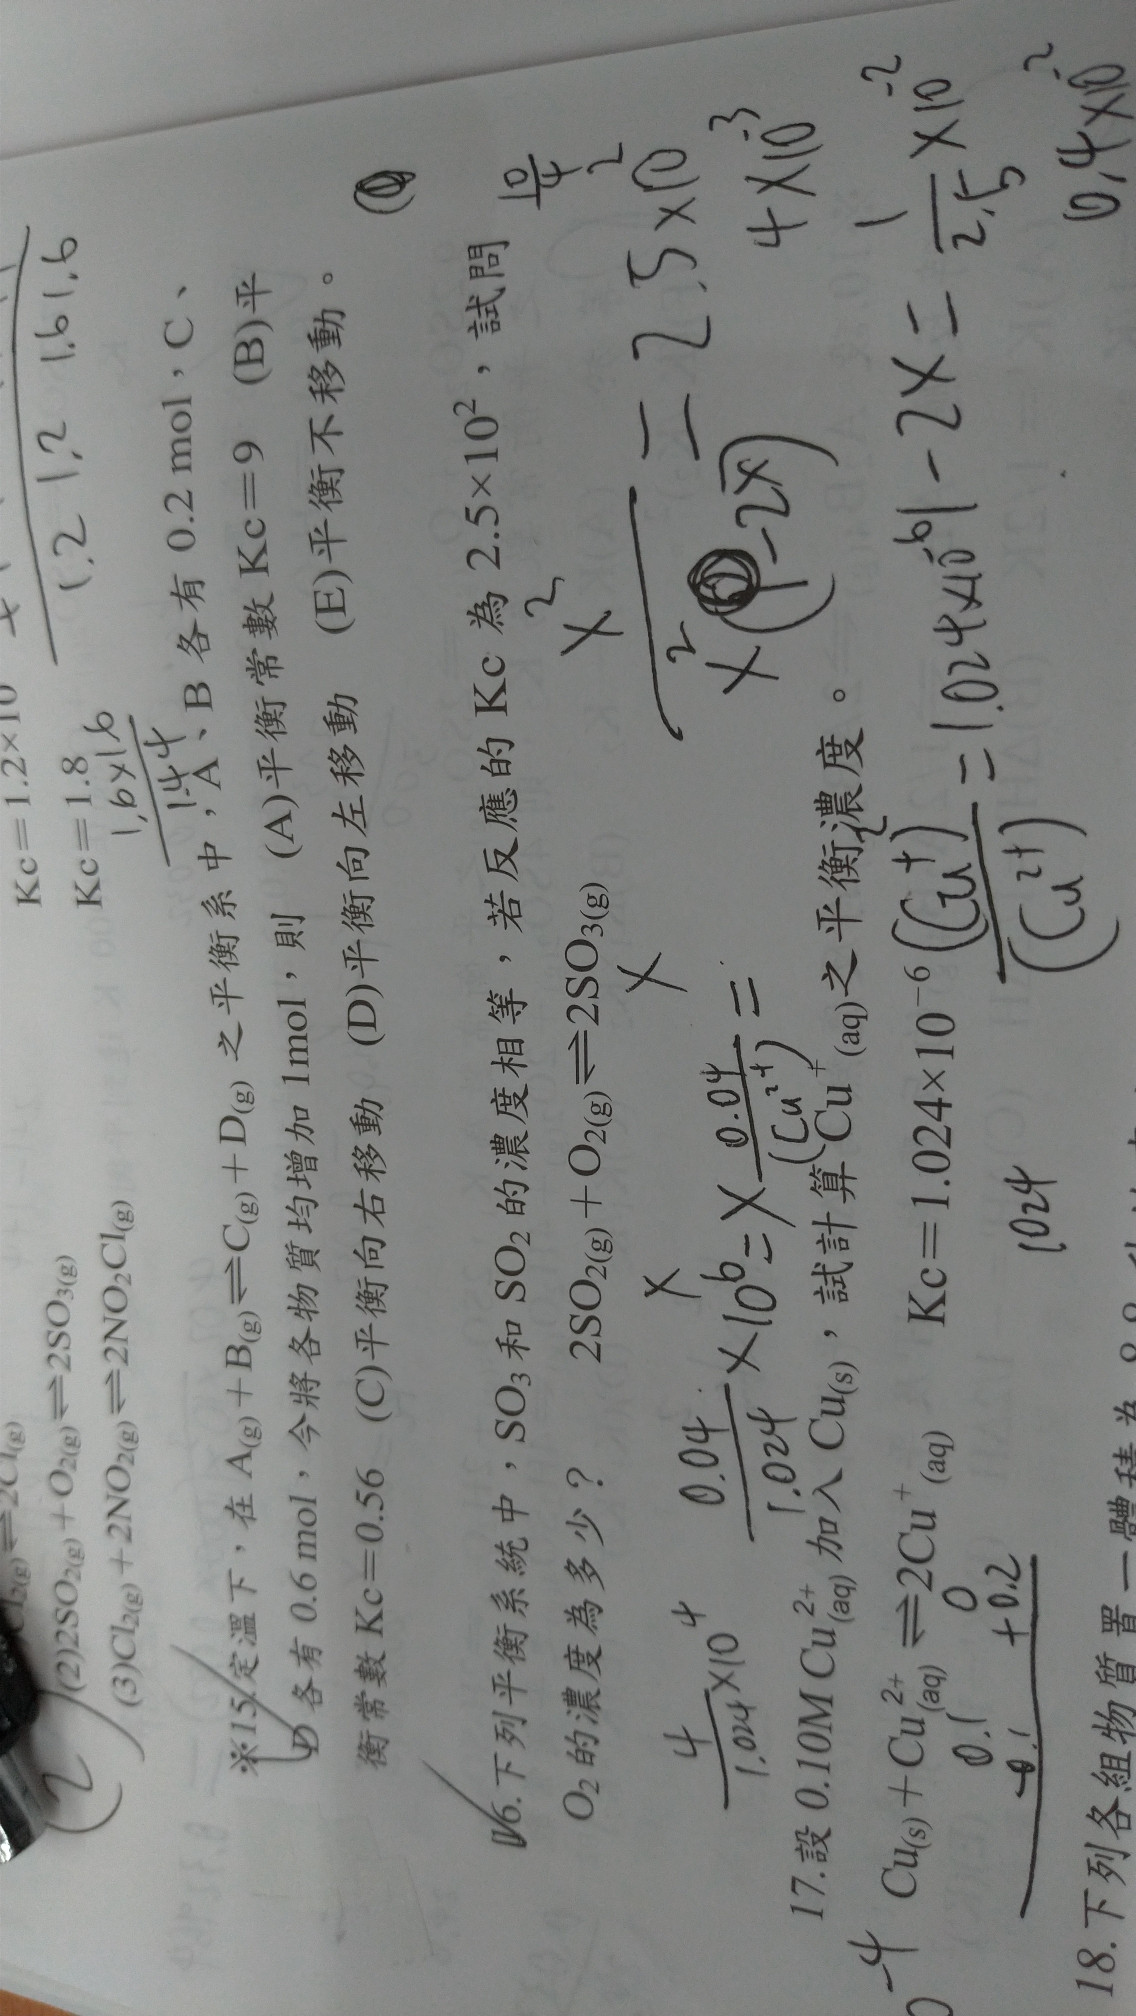 Kc＝1.2×10
(2)2SO₂(g)＋O₂(g)⇌2SO₃(g) Kc＝1.8
(3)Cl₂(g)＋2NO₂(g)⇌2NO₂Cl(g)
1.2 1.2 1.6 1.6
1.6×1.6
1.44
※15.定溫下，在 A(g)＋B(g)⇌C(g)＋D(g) 之平衡系中，A、B 各有 0.2 mol，C、
D 各有 0.6 mol，今將各物質均增加 1mol，則 (A)平衡常數 Kc＝9 (B)平
衡常數 Kc＝0.56 (C)平衡向右移動 (D)平衡向左移動 (E)平衡不移動。
16.下列平衡系統中，SO₃和 SO₂ 的濃度相等，若反應的 Kc 為 2.5×10²，試問
O₂的濃度為多少？ 2SO₂(g)＋O₂(g)⇌2SO₃(g)
x x
x²
x²(1-2x) = 2.5×10²
10/4
4×10⁻³
4/1.024 ×10⁴
0.04/1.024 ×10⁶ = x × 0.04/(Cu²⁺) =
17.設 0.10M Cu²⁺(aq)加入 Cu(s)，試計算 Cu⁺(aq)之平衡濃度。
Cu(s)＋Cu²⁺(aq)⇌2Cu⁺(aq) Kc＝1.024×10⁻⁶
(Cu⁺)²/(Cu²⁺) = 1.024×10⁻⁶
1-2x = 1/2.5 ×10⁻²
0.4×10⁻²
0.1 0
-0.1 +0.2
1024
18.下列各組物質置一體積為